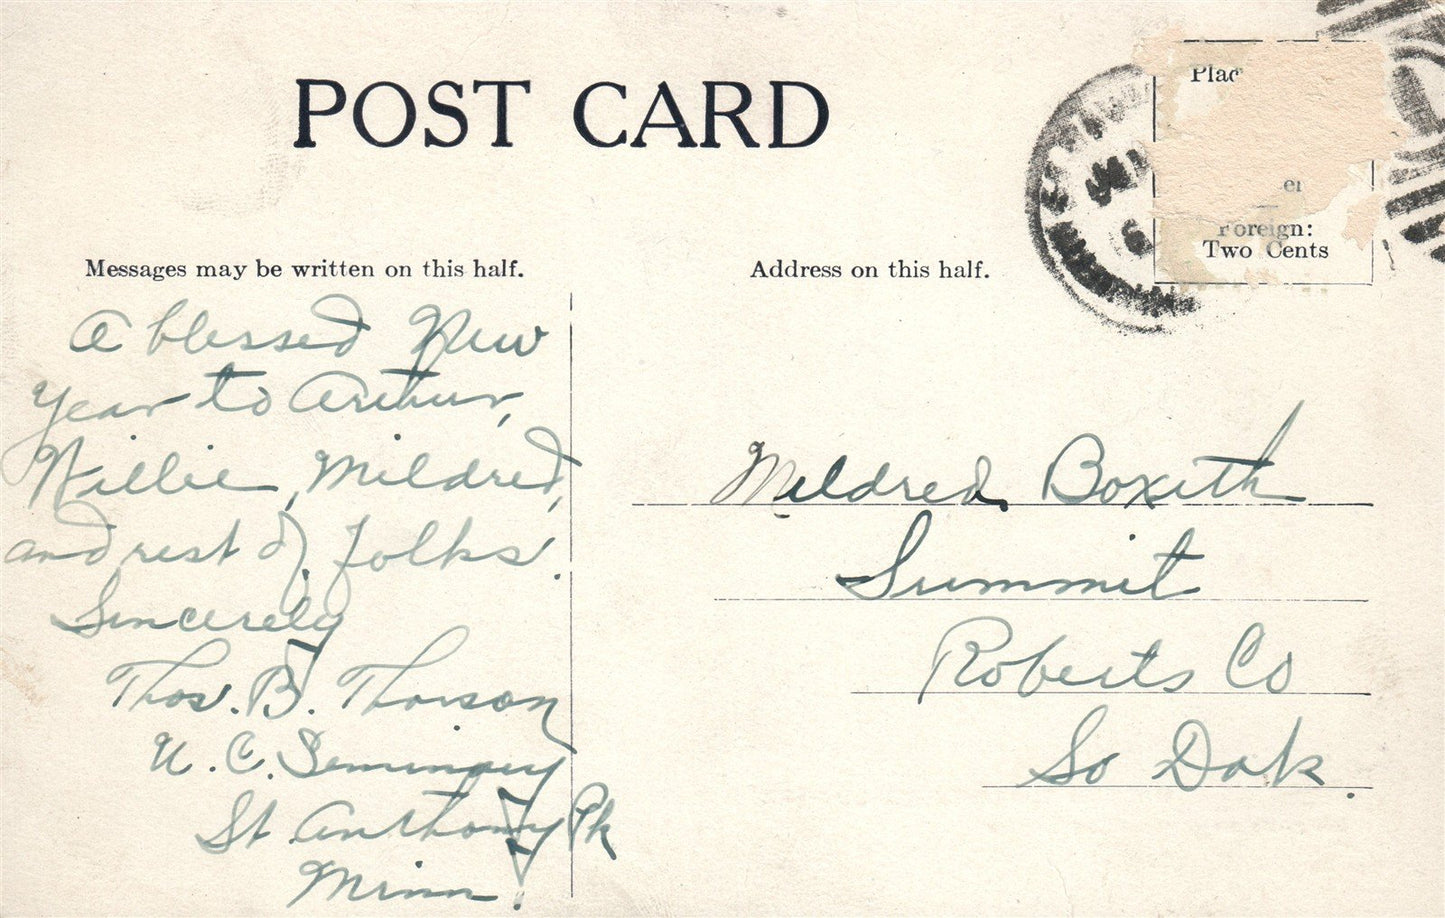 POST CARD
Plac
Foreign:
Two Cents
Messages may be written on this half.
Address on this half.
A blessed New
Year to Arthur,
Willie, Mildred,
and rest of folks.
Sincerely
Thos. B. Thorson
U. C. Seminary
St Anthony Pk
Minn.
Mildred Boxeth
Summit
Roberts Co
So Dak.